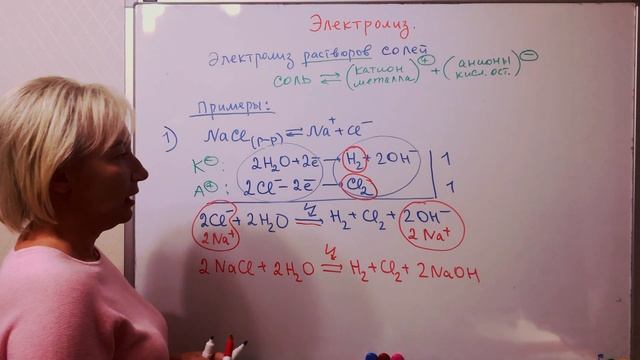 Электролиз.
Электролиз растворов солей
соль ⇄ (катион металла)⊕ + (анионы кисл. ост.)⊖
Примеры:
1) NaCl(р-р) ⇄ Na⁺ + Cl⁻
K⊖: 2H₂O + 2ē → H₂ + 2OH⁻ | 1
A⊕: 2Cl⁻ − 2ē → Cl₂ | 1
2Cl⁻ + 2H₂O ⇄ H₂ + Cl₂ + 2OH⁻
2Na⁺ 2Na⁺
2NaCl + 2H₂O = H₂ + Cl₂ + 2NaOH